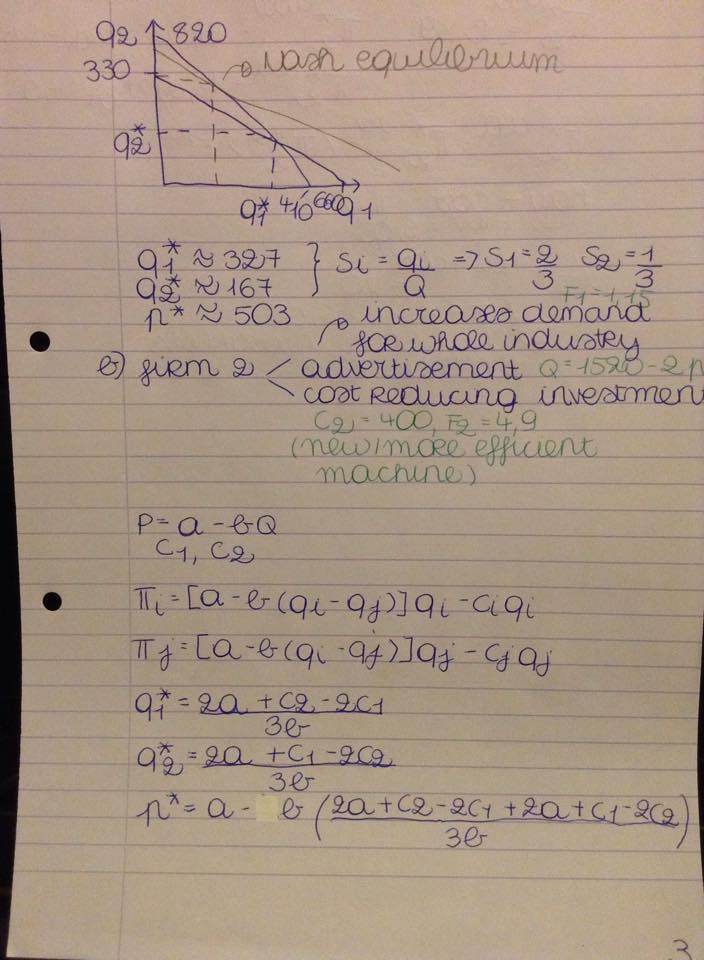 q2 820
330
Nash equilibrium
q2*
q1* 410 660 q1
q1* ≈ 327 } Si = qi/Q => S1 = 2/3 S2 = 1/3
q2* ≈ 167
F1 = 1,15
p* ≈ 503 increases demand
for whole industry
b) firm 2 < advertisement Q = 1520 - 2p
cost reducing investment
C2 = 400, F2 = 4,9
(new/more efficient
machine)
P = a - bQ
C1, C2
πi = [a - b(qi - qj)]qi - ciqi
πj = [a - b(qi - qj)]qj - cjqj
q1* = 2a + c2 - 2c1 / 3b
q2* = 2a + c1 - 2c2 / 3b
p* = a - b (2a + c2 - 2c1 + 2a + c1 - 2c2 / 3b)
3